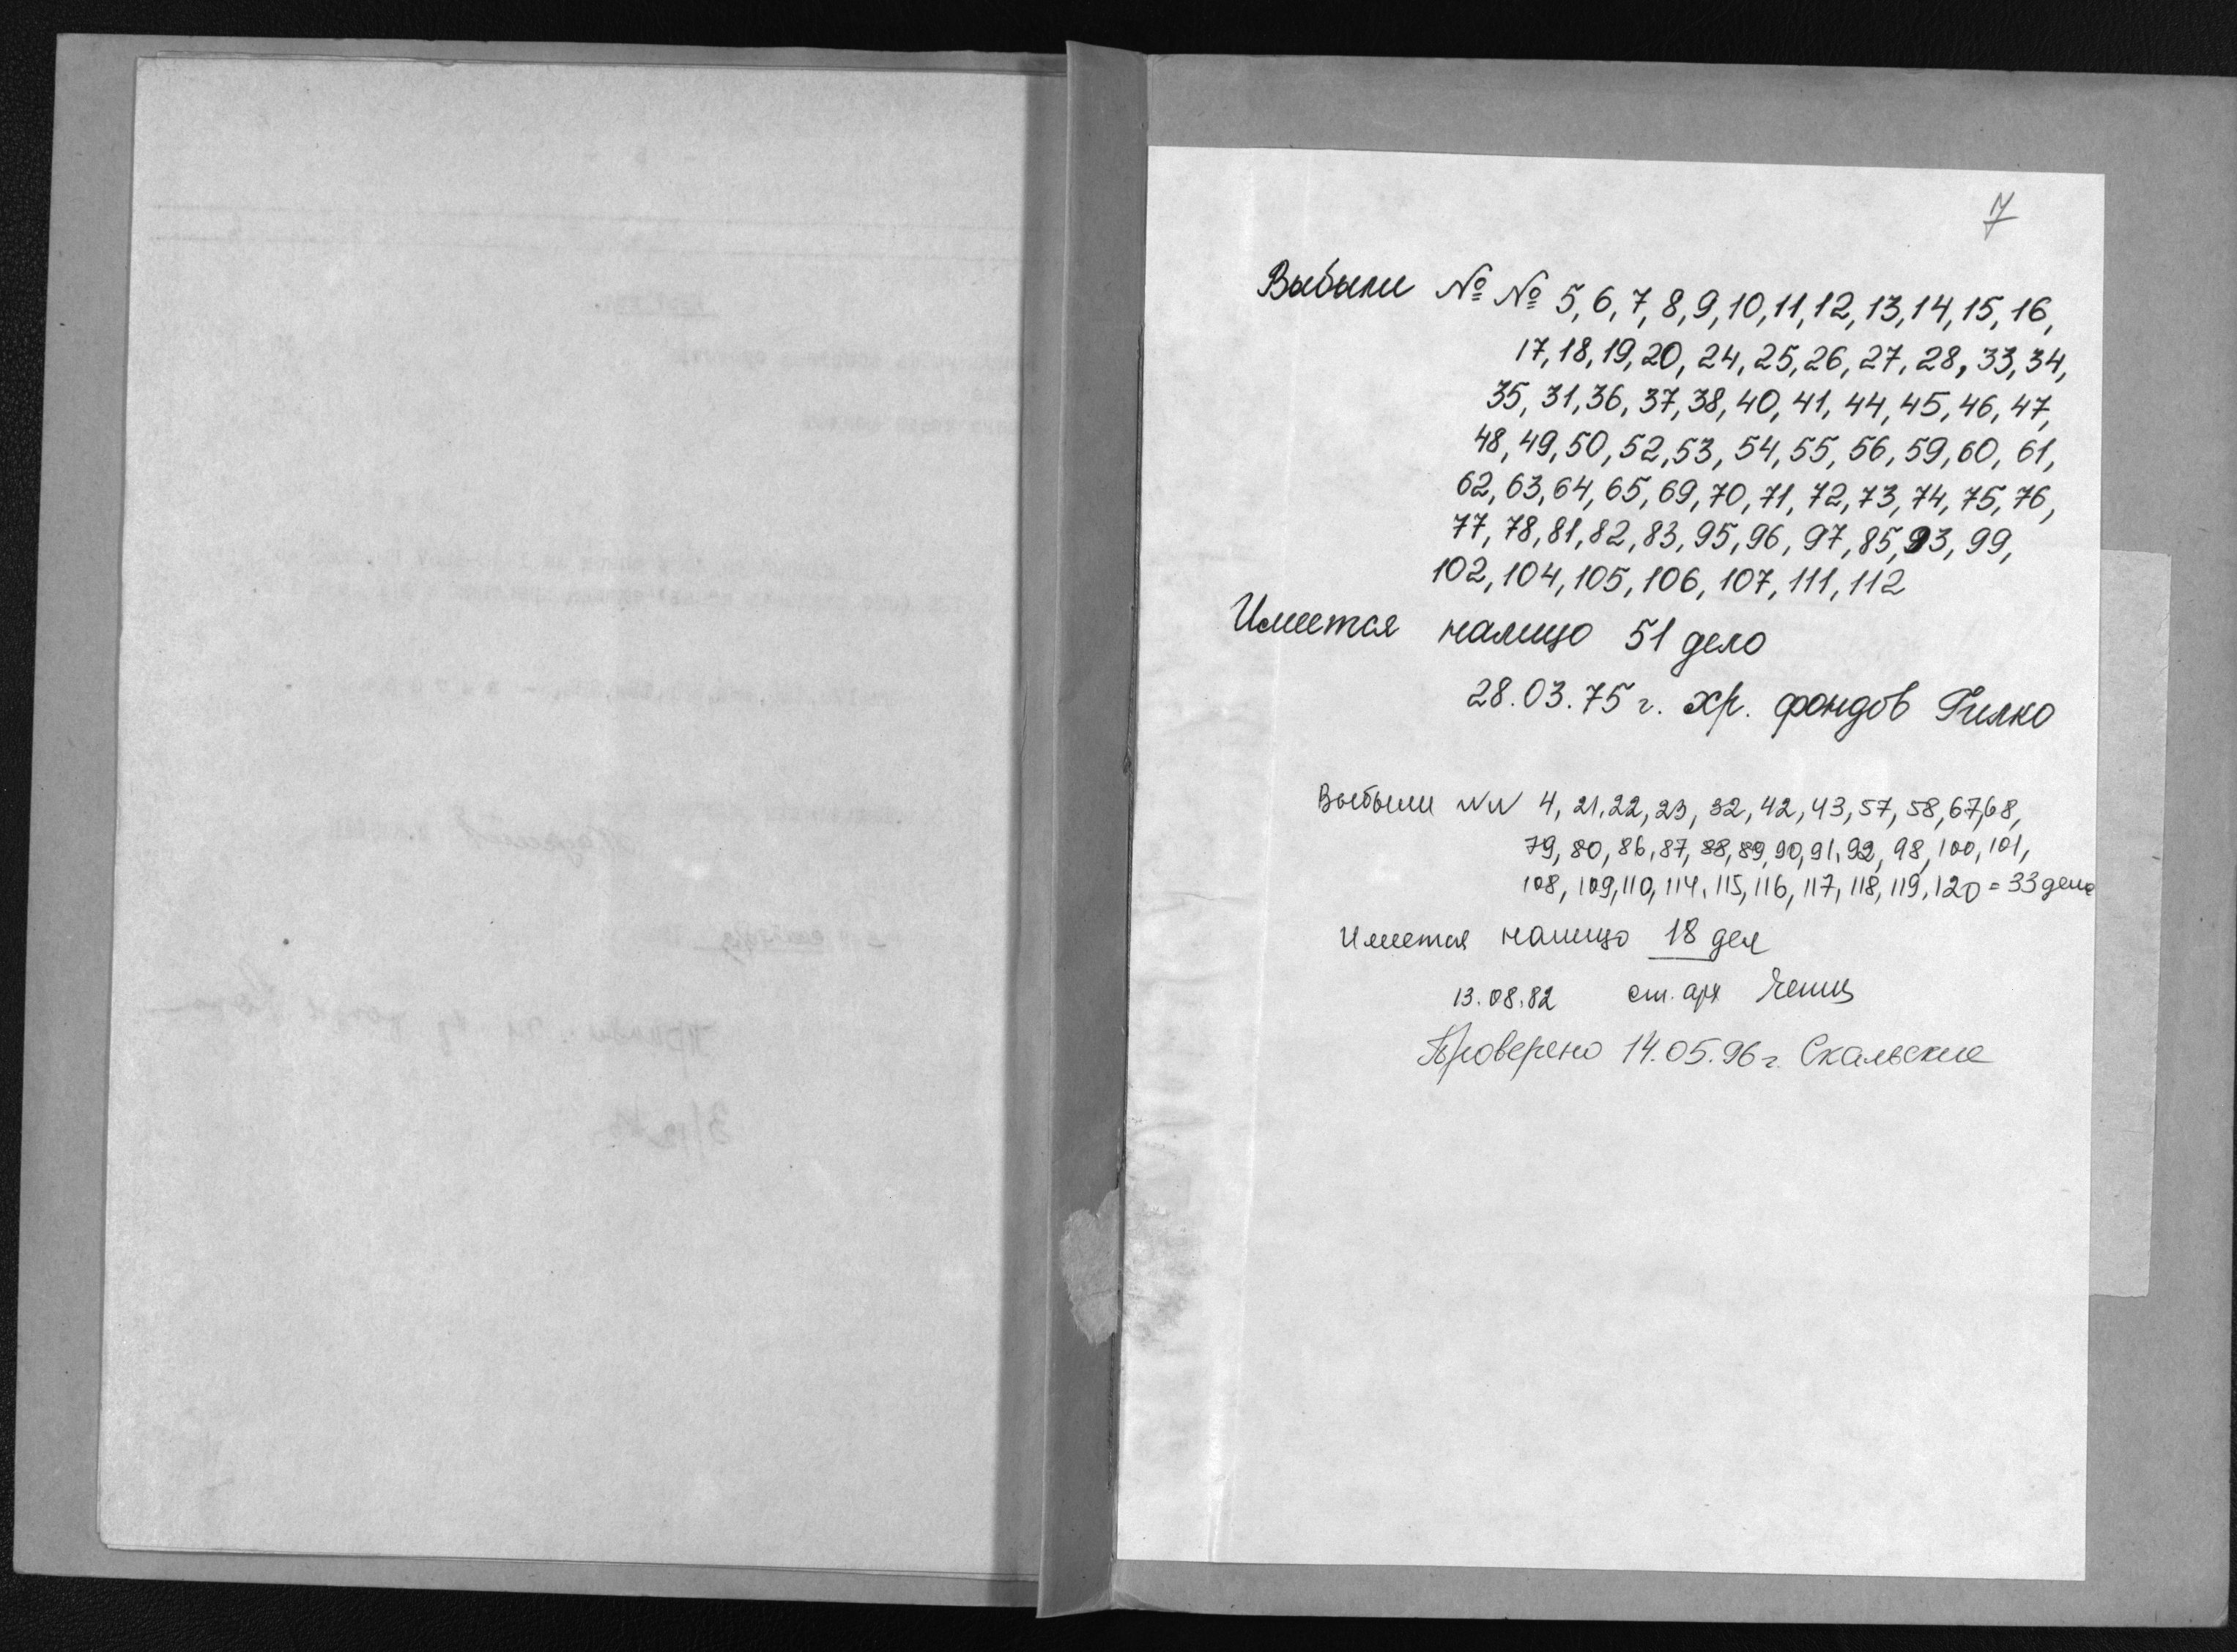 7
Выбыли №№ 5, 6, 7, 8, 9, 10, 11, 12, 13, 14, 15, 16,
17, 18, 19, 20, 24, 25, 26, 27, 28, 33, 34,
35, 31, 36, 37, 38, 40, 41, 44, 45, 46, 47,
48, 49, 50, 52, 53, 54, 55, 56, 59, 60, 61,
62, 63, 64, 65, 69, 70, 71, 72, 73, 74, 75, 76,
77, 78, 81, 82, 83, 95, 96, 97, 85, 93, 99,
102, 104, 105, 106, 107, 111, 112
Имеется налицо 51 дело
28.03.75 г. хр. фондов Гилко
Выбыли NN 4, 21, 22, 23, 32, 42, 43, 57, 58, 67, 68,
79, 80, 86, 87, 88, 89, 90, 91, 92, 98, 100, 101,
108, 109, 110, 114, 115, 116, 117, 118, 119, 120 = 33 дела
Имеется налицо 18 дел
13.08.82 ст. арх
Проверено 14.05.96 г. Скальские